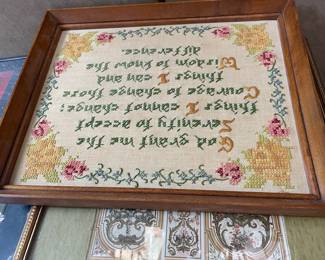 God grant me the
Serenity to accept
things I cannot change:
Courage to change those
things I can and
Wisdom to know the
difference.